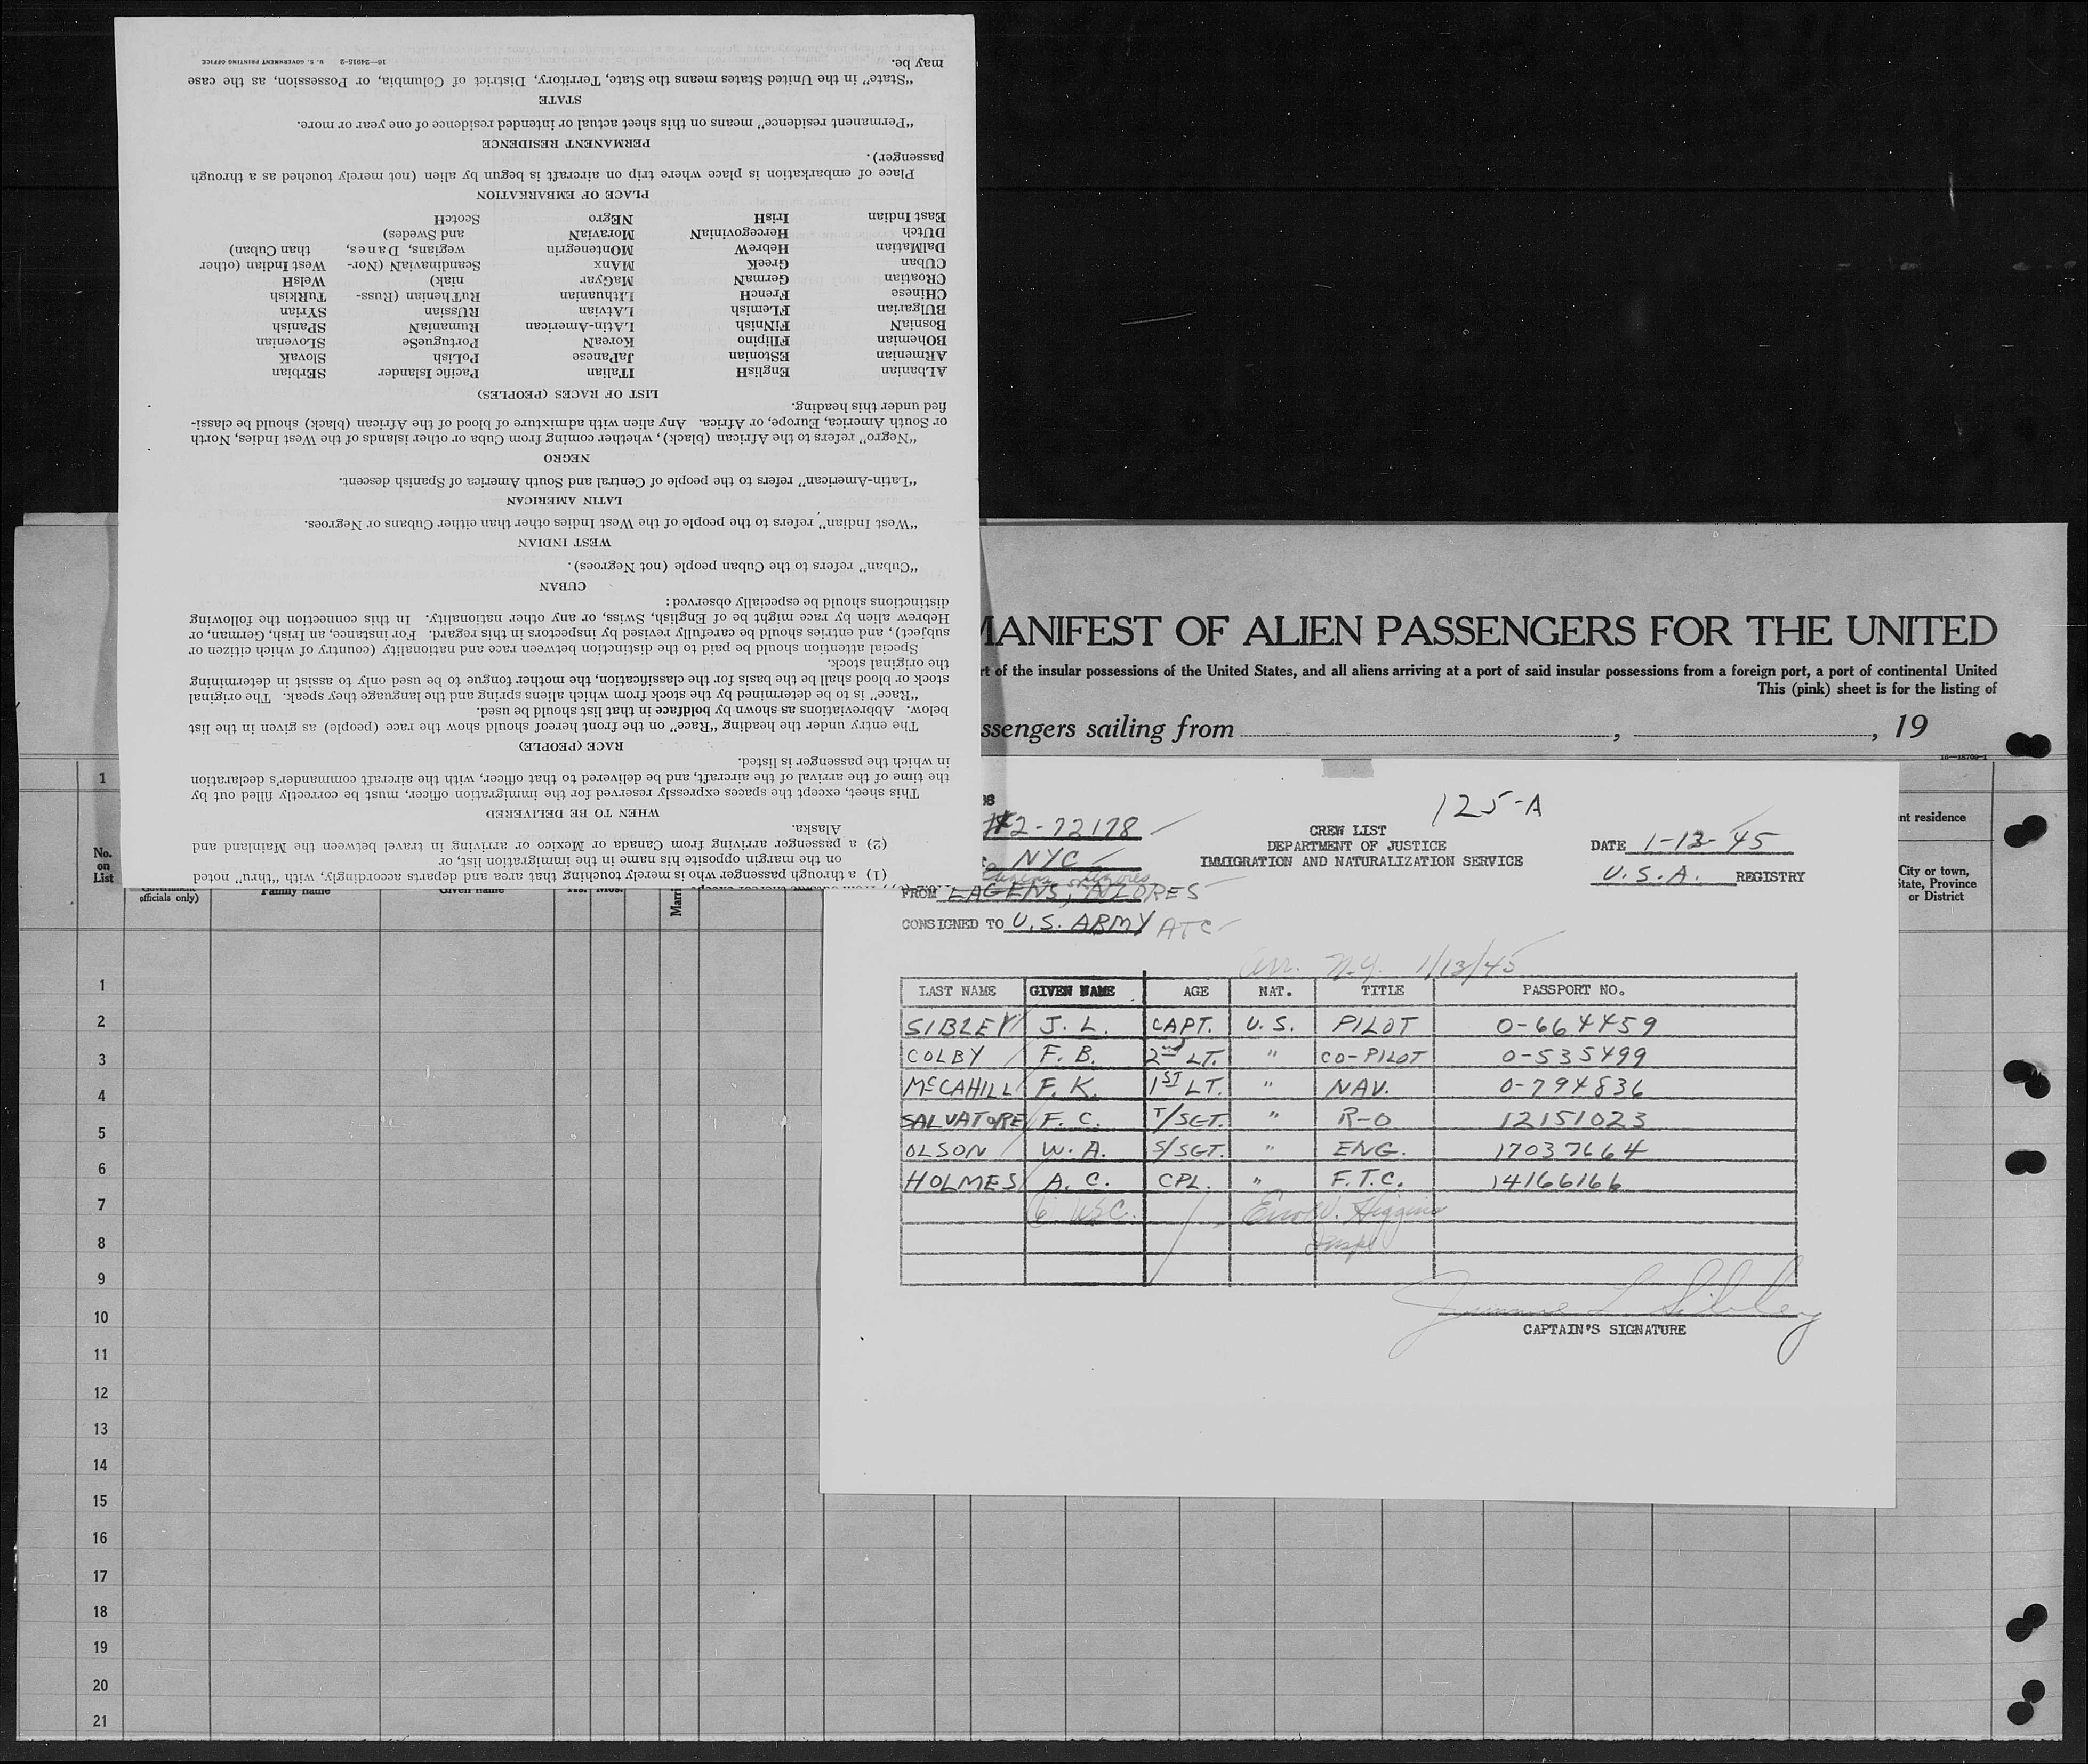 (1) a through passenger who is merely touching that area and departs accordingly, with "thru" noted
on the margin opposite his name in the immigration list, or
(2) a passenger arriving from Canada or Mexico or arriving in travel between the Mainland and
Alaska.
WHEN TO BE DELIVERED
This sheet, except the spaces expressly reserved for the immigration officer, must be correctly filled out by
the time of the arrival of the aircraft, and be delivered to that officer, with the aircraft commander's declaration
in which the passenger is listed.
RACE (PEOPLE)
The entry under the heading "Race" on the front hereof should show the race (people) as given in the list
below. Abbreviations as shown by boldface in that list should be used.
"Race" is to be determined by the stock from which aliens spring and the language they speak. The original
stock or blood shall be the basis for the classification, the mother tongue to be used only to assist in determining
the original stock.
Special attention should be paid to the distinction between race and nationality (country of which citizen or
subject), and entries should be carefully revised by inspectors in this regard. For instance, an Irish, German, or
Hebrew alien by race might be of English, Swiss, or any other nationality. In this connection the following
distinctions should be especially observed:
CUBAN
"Cuban" refers to the Cuban people (not Negroes).
WEST INDIAN
"West Indian" refers to the people of the West Indies other than either Cubans or Negroes.
LATIN AMERICAN
"Latin-American" refers to the people of Central and South America of Spanish descent.
NEGRO
"Negro" refers to the African (black), whether coming from Cuba or other islands of the West Indies, North
or South America, Europe, or Africa. Any alien with admixture of blood of the African (black) should be classi-
fied under this heading.
LIST OF RACES (PEOPLES)
ALbanian EnglisH ITalian Pacific Islander SErbian
ARmenian EStonian JaPanese PoLish SlovaK
BOhemian FIlipino KoreaN PortugueSe SLovenian
BosniaN FiNnish LAtin-American RumaniaN SPanish
BUlgarian FLemish LAtvian RUssian SYrian
CHinese FrencH LIthuanian RuThenian (Russ- TuRkish
CRoatian GermaN MaGyar niak) WelsH
CUban GreeK MAnx ScandinaviaN (Nor- West Indian (other
DalMatian HebreW MOntenegrin wegians, Danes, than Cuban)
DUtch HercegoviniaN MoraviaN and Swedes)
East Indian IrisH NEgro ScotcH
PLACE OF EMBARKATION
Place of embarkation is place where trip on aircraft is begun by alien (not merely touched as a through
passenger).
PERMANENT RESIDENCE
"Permanent residence" means on this sheet actual or intended residence of one year or more.
STATE
"State" in the United States means the State, Territory, District of Columbia, or Possession, as the case
may be.
16—24915-2 U. S. GOVERNMENT PRINTING OFFICE
MANIFEST OF ALIEN PASSENGERS FOR THE UNITED
rt of the insular possessions of the United States, and all aliens arriving at a port of said insular possessions from a foreign port, a port of continental United
This (pink) sheet is for the listing of
ssengers sailing from , , 19
16—18700-1
1
No.
on
List
officials only)
Family name Given name
nt residence
City or town,
State, Province
or District
125-A
#2-72178
CREW LIST
DEPARTMENT OF JUSTICE
IMMIGRATION AND NATURALIZATION SERVICE
DATE 1-13-45
NYC
U.S.A. REGISTRY
Lagens Azores
FROM LAGENS, AZORES
CONSIGNED TO U.S. ARMY ATC
Arr. N.Y. 1/13/45
LAST NAME GIVEN NAME AGE NAT. TITLE PASSPORT NO.
SIBLEY J. L. CAPT. U.S. PILOT 0-664459
COLBY F. B. 2nd LT. " CO-PILOT 0-535499
McCAHILL F. K. 1ST LT. " NAV. 0-794836
SALVATORE F. C. T/SGT. " R-O 12151023
OLSON W. A. S/SGT. " ENG. 17037664
HOLMES A. C. CPL. " F.T.C. 14166166
6 USC. Higgins
Insp
Jimmie L Sibley
CAPTAIN'S SIGNATURE
1
2
3
4
5
6
7
8
9
10
11
12
13
14
15
16
17
18
19
20
21